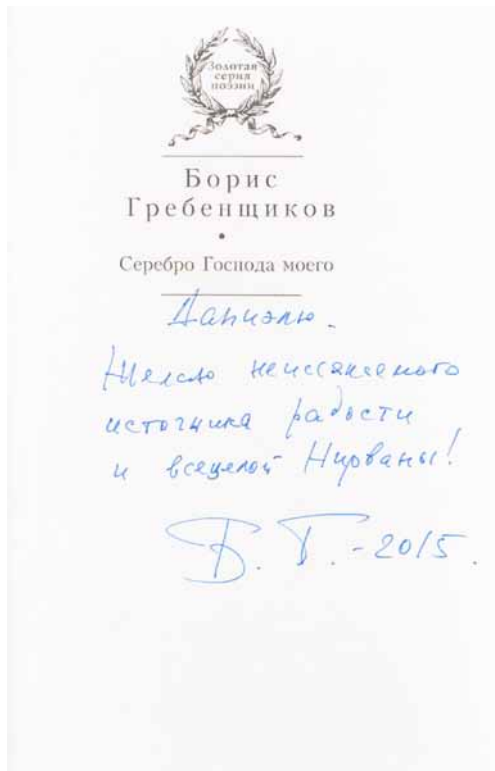 Золотая
серия
поэзии
Борис
Гребенщиков
•
Серебро Господа моего
Даниэлю.
Желаю неиссякаемого
источника радости
и всецелой Нирваны!
Б. Г. - 2015.